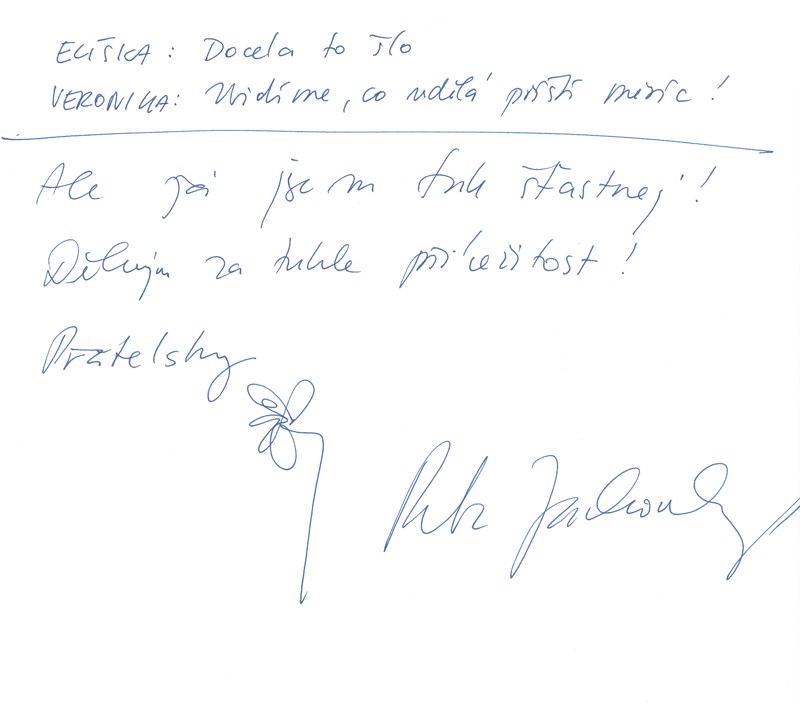 ELIŠKA: Docela to šlo
VERONIKA: Uvidíme, co udělá příští měsíc!
Ale já jsem tak šťastnej!
Děkujm za tuhle příležitost!
Přátelsky
Petr